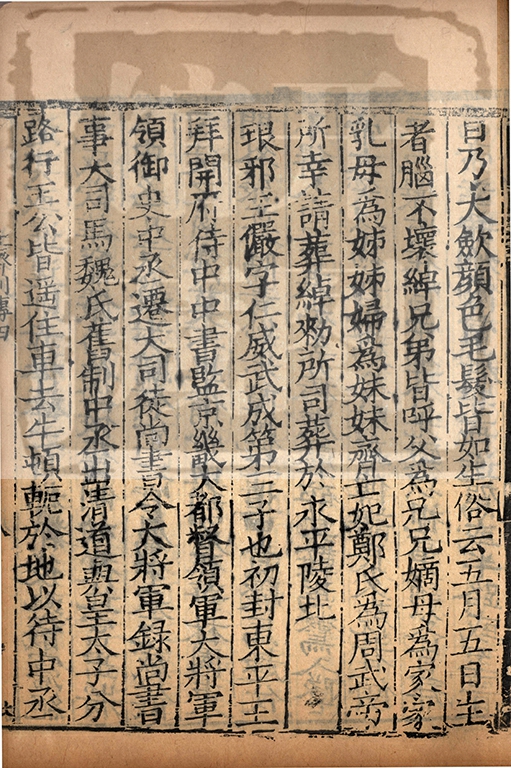 日乃大斂顔色毛髮皆如生俗云五月五日生
者腦不壞綽兄弟皆呼父爲兄兄嫡母爲家家
乳母爲姊姊婦爲妹妹齊亡妃鄭氏爲周武帝
所幸請葬綽勑所司葬於永平陵北
琅邪王儼字仁威武成第三子也初封東平王
拜開府侍中中書監京畿大都督領軍大將軍
領御史中丞遷大司徒尚書令大將軍録尚書
事大司馬魏氏舊制中丞出清道與皇太子分
路行王公皆遥住車去牛頓軛於地以待中丞